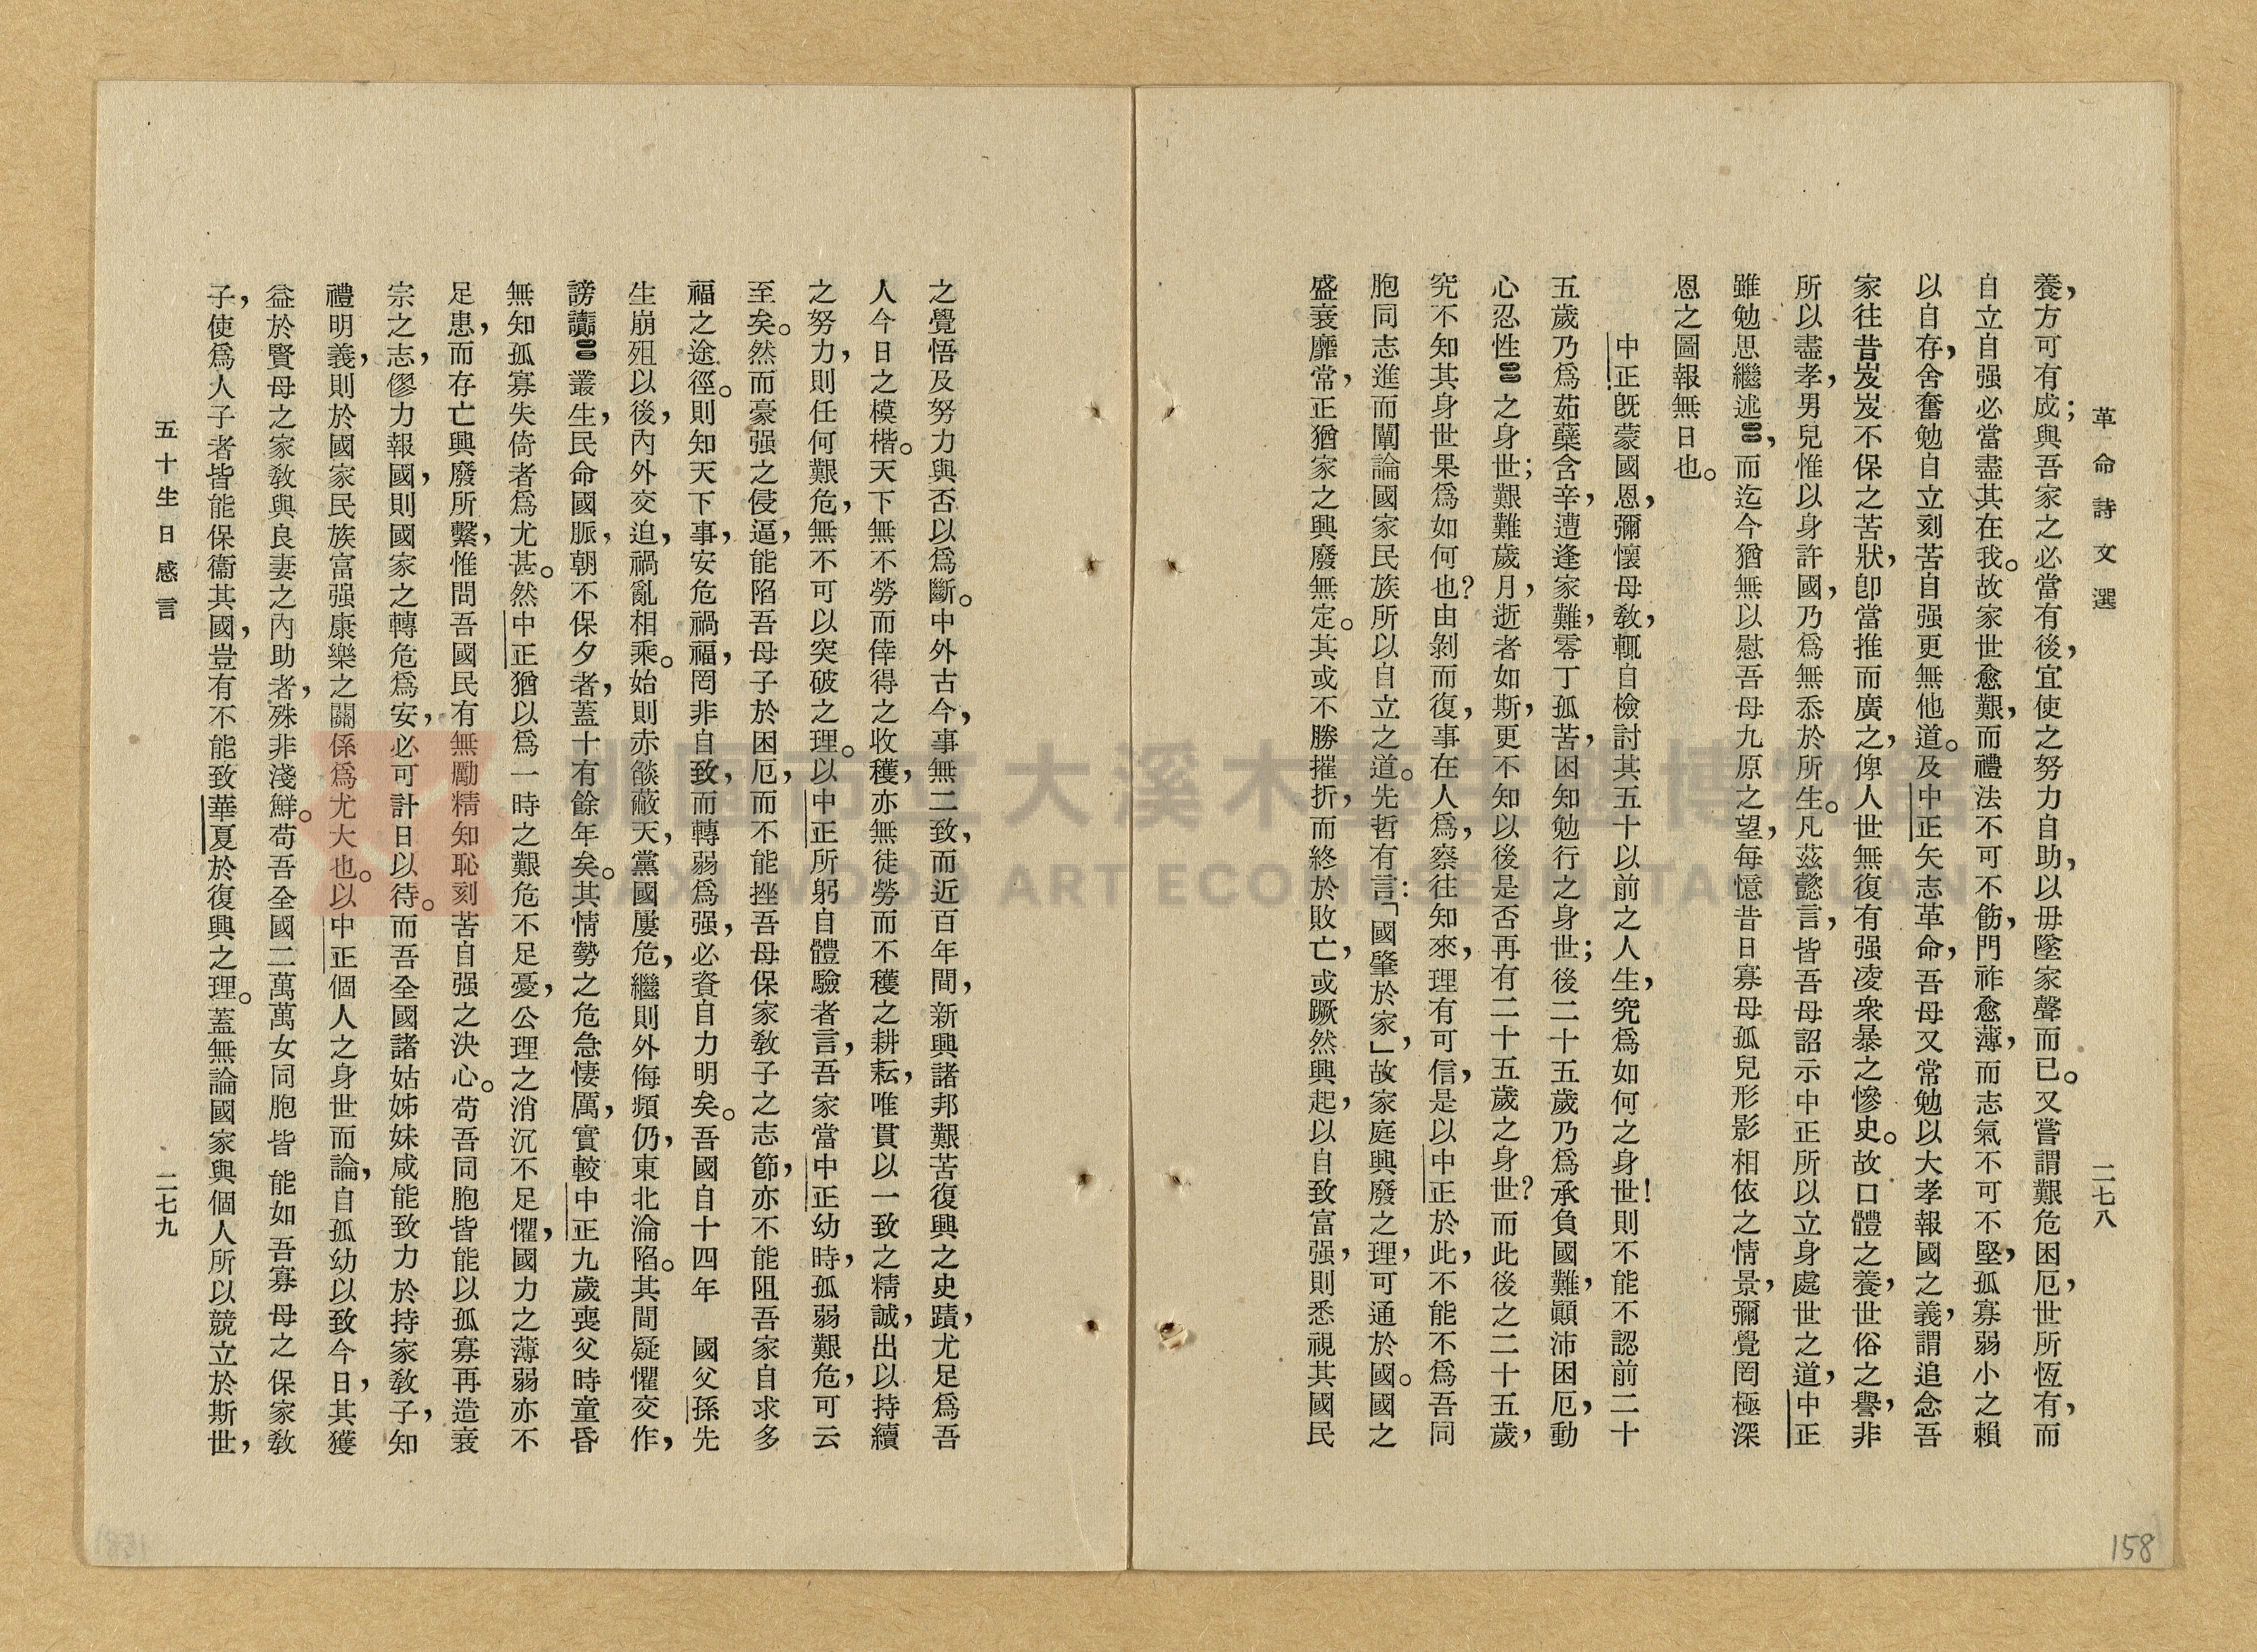 革命詩文選
二七八
養，方可有成；與吾家之必當有後，宜使之努力自助，以毋墜家聲而已。又嘗謂艱危困厄，世所恆有，而
自立自强必當盡其在我。故家世愈艱，而禮法不可不飭，門祚愈薄，而志氣不可不堅，孤寡弱小之賴
以自存，舍奮勉自立刻苦自强更無他道。及中正矢志革命，吾母又常勉以大孝報國之義，謂追念吾
家往昔岌岌不保之苦狀，卽當推而廣之，俾人世無復有强凌衆暴之慘史。故口體之養，世俗之譽，非
所以盡孝，男兒惟以身許國，乃爲無忝於所生。凡茲懿言，皆吾母詔示中正所以立身處世之道，中正
雖勉思繼述，而迄今猶無以慰吾母九原之望，每憶昔日寡母孤兒形影相依之情景，彌覺罔極深
恩之圖報無日也。
中正旣蒙國恩，彌懷母敎，輒自檢討其五十以前之人生，究爲如何之身世！則不能不認前二十
五歲乃爲茹蘗含辛，遭逢家難，零丁孤苦，困知勉行之身世；後二十五歲乃爲承負國難，顚沛困厄，動
心忍性之身世；艱難歲月，逝者如斯，更不知以後是否再有二十五歲之身世？而此後之二十五歲，
究不知其身世果爲如何也？由剝而復，事在人爲，察往知來，理有可信，是以中正於此，不能不爲吾同
胞同志進而闡論國家民族所以自立之道。先哲有言：「國肇於家」，故家庭興廢之理，可通於國。國之
盛衰靡常，正猶家之興廢無定。其或不勝摧折，而終於敗亡，或蹶然興起，以自致富强，則悉視其國民
158
之覺悟及努力與否以爲斷。中外古今，事無二致，而近百年間，新興諸邦艱苦復興之史蹟，尤足爲吾
人今日之模楷。天下無不勞而倖得之收穫，亦無徒勞而不穫之耕耘，唯貫以一致之精誠，出以持續
之努力，則任何艱危，無不可以突破之理。以中正所躬自體驗者言，吾家當中正幼時，孤弱艱危，可云
至矣。然而豪强之侵逼，能陷吾母子於困厄，而不能挫吾母保家敎子之志節，亦不能阻吾家自求多
福之途徑。則知天下事，安危禍福，罔非自致，而轉弱爲强，必資自力明矣。吾國自十四年　國父孫先
生崩殂以後，內外交迫，禍亂相乘。始則赤燄蔽天，黨國屢危，繼則外侮頻仍，東北淪陷。其間疑懼交作，
謗讟叢生，民命國脈，朝不保夕者，蓋十有餘年矣。其情勢之危急悽厲，實較中正九歲喪父時童昏
無知孤寡失倚者爲尤甚。然中正猶以爲一時之艱危不足憂，公理之消沉不足懼，國力之薄弱亦不
足患，而存亡興廢所繫，惟問吾國民有無勵精知恥刻苦自强之決心。苟吾同胞皆能以孤寡再造衰
宗之志，僇力報國，則國家之轉危爲安，必可計日以待。而吾全國諸姑姊妹咸能致力於持家敎子，知
禮明義，則於國家民族富强康樂之關係爲尤大也。以中正個人之身世而論，自孤幼以致今日，其獲
益於賢母之家敎與良妻之內助者，殊非淺鮮。苟吾全國二萬萬女同胞皆能如吾寡母之保家敎
子，使爲人子者皆能保衞其國，豈有不能致華夏於復興之理。蓋無論國家與個人所以競立於斯世，
五十生日感言
二七九
桃園市立大溪木藝生態博物館
DAXI WOOD ART ECOMUSEUM, TAOYUAN